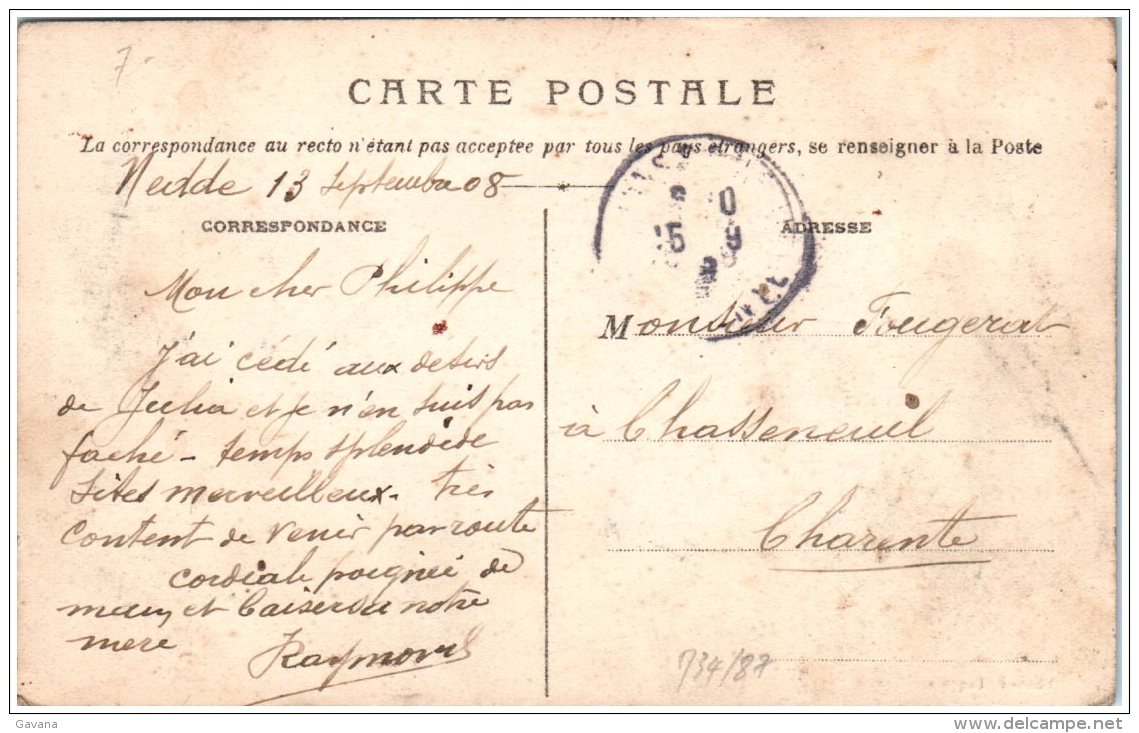 7-
CARTE POSTALE
La correspondance au recto n'étant pas acceptée par tous les pays étrangers, se renseigner à la Poste
Nedde 13 Septembre 08
CORRESPONDANCE
Mon cher Philippe
J'ai cédé aux desirs
de Julia et je n'en suis pas
faché - temps splendide
sites merveilleux - très
content de venir par route
cordiale poignée de
main et baiser à notre
mere
Raymond
ADRESSE
Monsieur Fougerat
à Chasseneuil
Charente
734/87
Gavana
delcampe.net